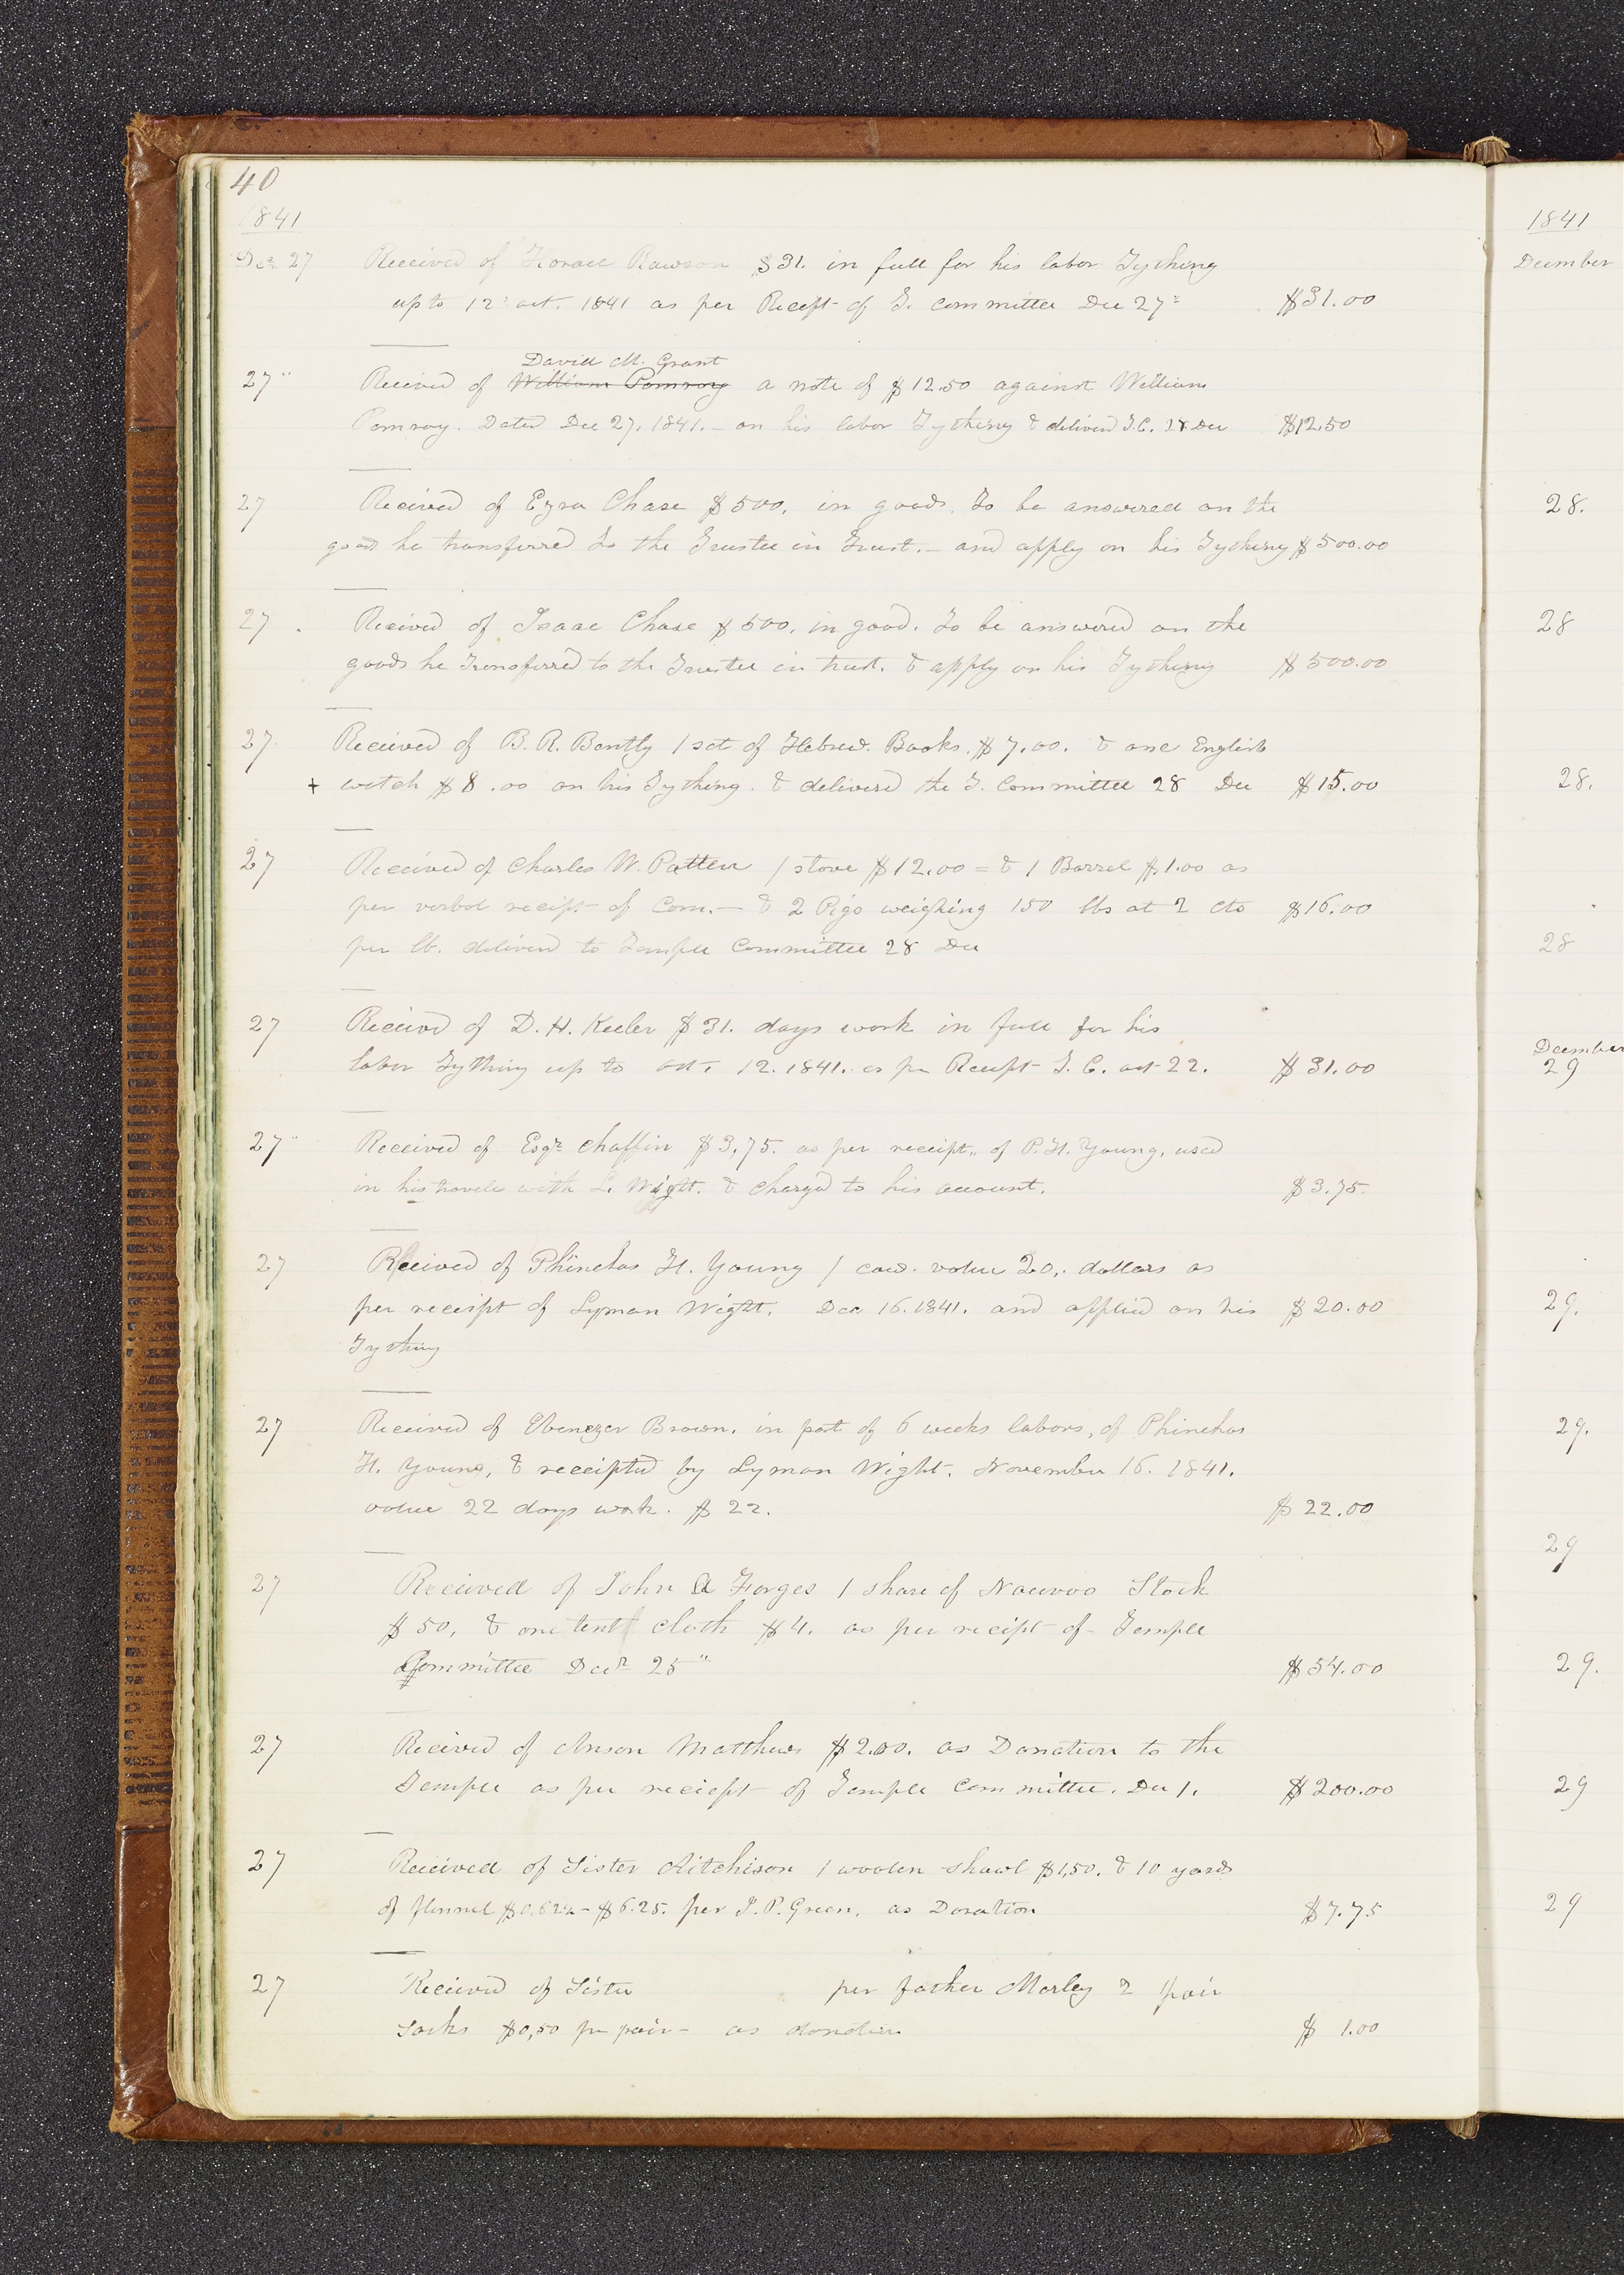 40
1841
Dec 27 Received of Horace Rawson $31. in full for his labor Tything
up to 12" oct. 1841 as per Receipt of T. committee Dec 27" $31.00
David M. Grant
27" Received of William Pomroy a note of $12.50 against William
Pomroy. Dated Dec 27, 1841. – on his labor Tything & deliverd T.C. 28 Dec $12.50
27 Received of Ezra Chase $500, in goods, To be answered on the
goods he transferred to the Trustee in Trust. – and apply on his Tything $500.00
27. Received of Isaac Chase $500, in good. To be answered on the
goods he Transferred to the Trustee in trust. & apply on his Tything $500.00
27 Received of B. R. Bently 1 set of Hebrew. Books. $7.00. & one English
+ watch $8.00 on his Tything. & deliverd the T. Committee 28 Dec $15.00
27 Received of Charles W. Patten 1 stove $12.00 = & 1 Barrel $1.00 as
per verbal receipt of Com. – & 2 Pigs weighing 150 lbs at 2 cts $16.00
per lb. deliverd to Temple Committee 28 Dec
27 Received of D. H. Keeler $31. days work in full for his
labor Tything up to oct. 12. 1841. as per Receipt T. C. oct 22. $31.00
27" Received of Esqr. Chaffin $3,75. as per receipt,, of P. H. Young, used
in his travels with L. Wight. & charged to his account. $3.75.
27 Received of Phinehas H. Young 1 cow. value 20,. dollars as
per receipt of Lyman Wight. Dec 16. 1841. and applied on his $20.00
Tything
27 Received of Ebenezer Brown. in part of 6 weeks labors, of Phinehas
H. Young, & receipted by Lyman Wight. November 16. 1841.
value 22 days work. $22. $22.00
27 Received of John A Forges 1 share of Nauvoo Stock
$50, & one tent cloth $4. as per receipt of Temple
Committee Decr 25" $54.00
27 Received of Anson Matthews $2.00. as Donation to the
Temple as per reciept of Temple Committee. Dec 1. $200.00
27 Received of Sister Aitchison 1 woolen shawl $1,50. & 10 yards
of flannel $0.62½ – $6.25. per J. P. Green. as Donation $7.75
27 Received of Sister per father Morley 2 pair
Socks $0,50 per pair – as donation $1.00
1841
December
28.
28
28.
28
December
29
29.
29.
29
29.
29
29